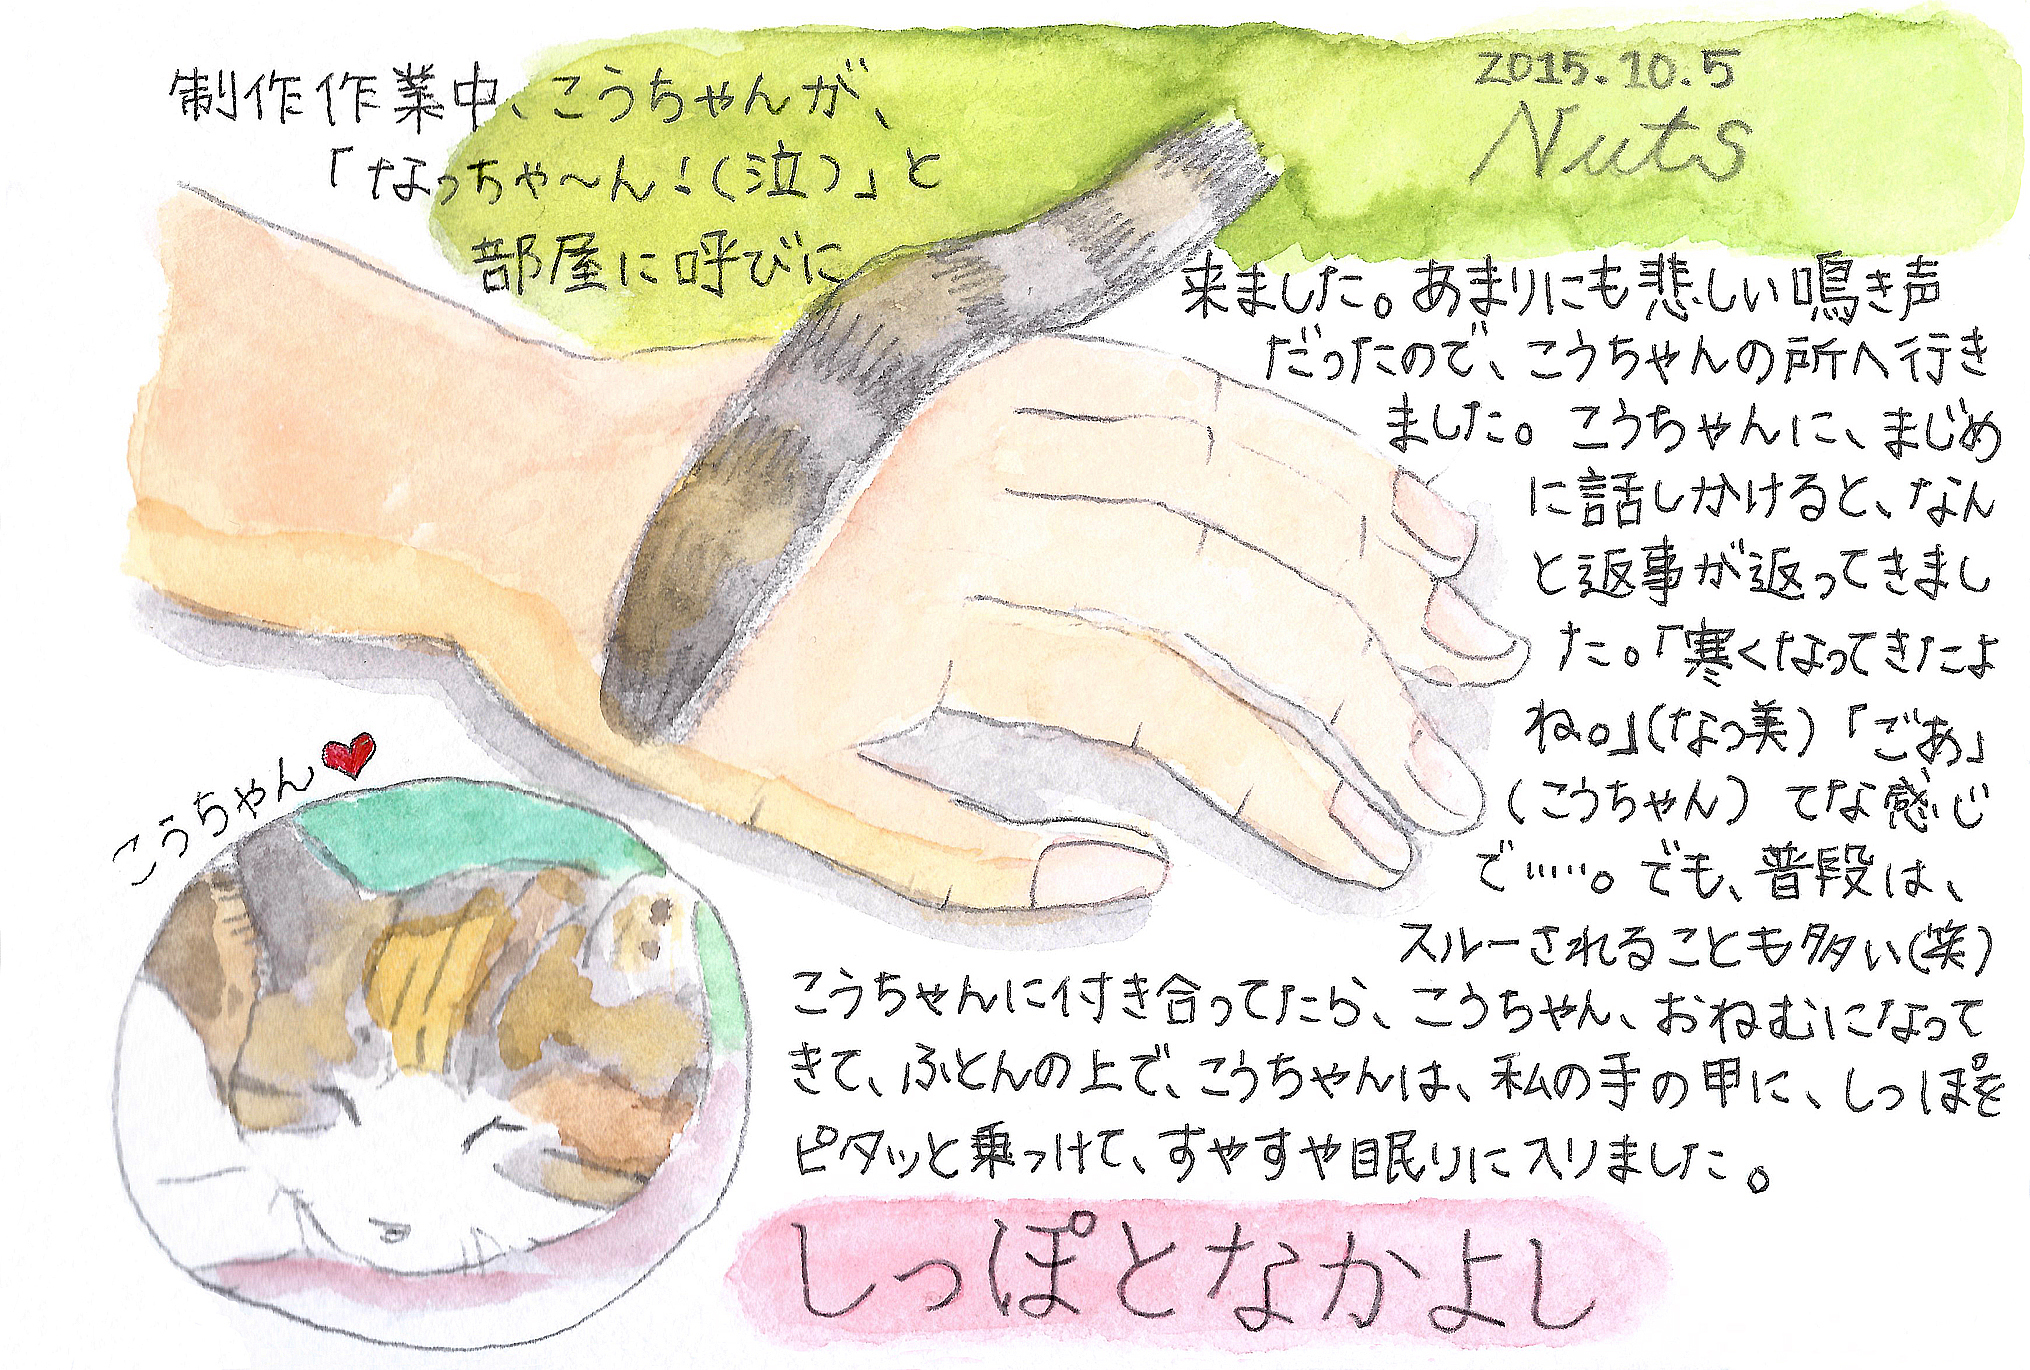 制作作業中、こうちゃんが、
「なっちゃ〜ん！（泣）」と
部屋に呼びに
2015.10.5
Nuts
来ました。あまりにも悲しい鳴き声
だったので、こうちゃんの所へ行き
ました。こうちゃんに、まじめ
に話しかけると、なん
と返事が返ってきまし
た。「寒くなってきたよ
ね。」（なっ美）「ごあ」
（こうちゃん）てな感じ
で……。でも、普段は、
スルーされることも多い（笑）
こうちゃんに付き合ってたら、こうちゃん、おねむになって
きて、ふとんの上で、こうちゃんは、私の手の甲に、しっぽを
ピタッと乗っけて、すやすや眠りに入りました。
こうちゃん♥
しっぽとなかよし